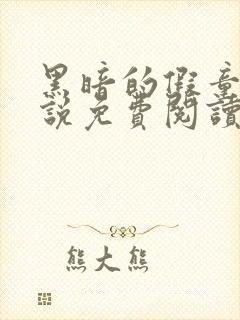 黑暗的假童
說免費閱讀
熊大熊